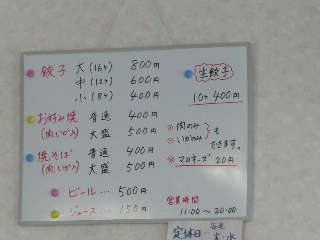 餃子 大(16ヶ) 800円
中(12ヶ) 600円
小(8ヶ) 400円
お好み焼 普通 400円
(肉いか入) 大盛 500円
焼そば 普通 400円
(肉いか入) 大盛 500円
ビール… 500円
ジュース… 150円
生餃子
10ヶ 400円
※肉のみ
※いかのみ
も
できます。
※マヨネーズ 20円
営業時間
11:00〜20:00
定休日…
火・水